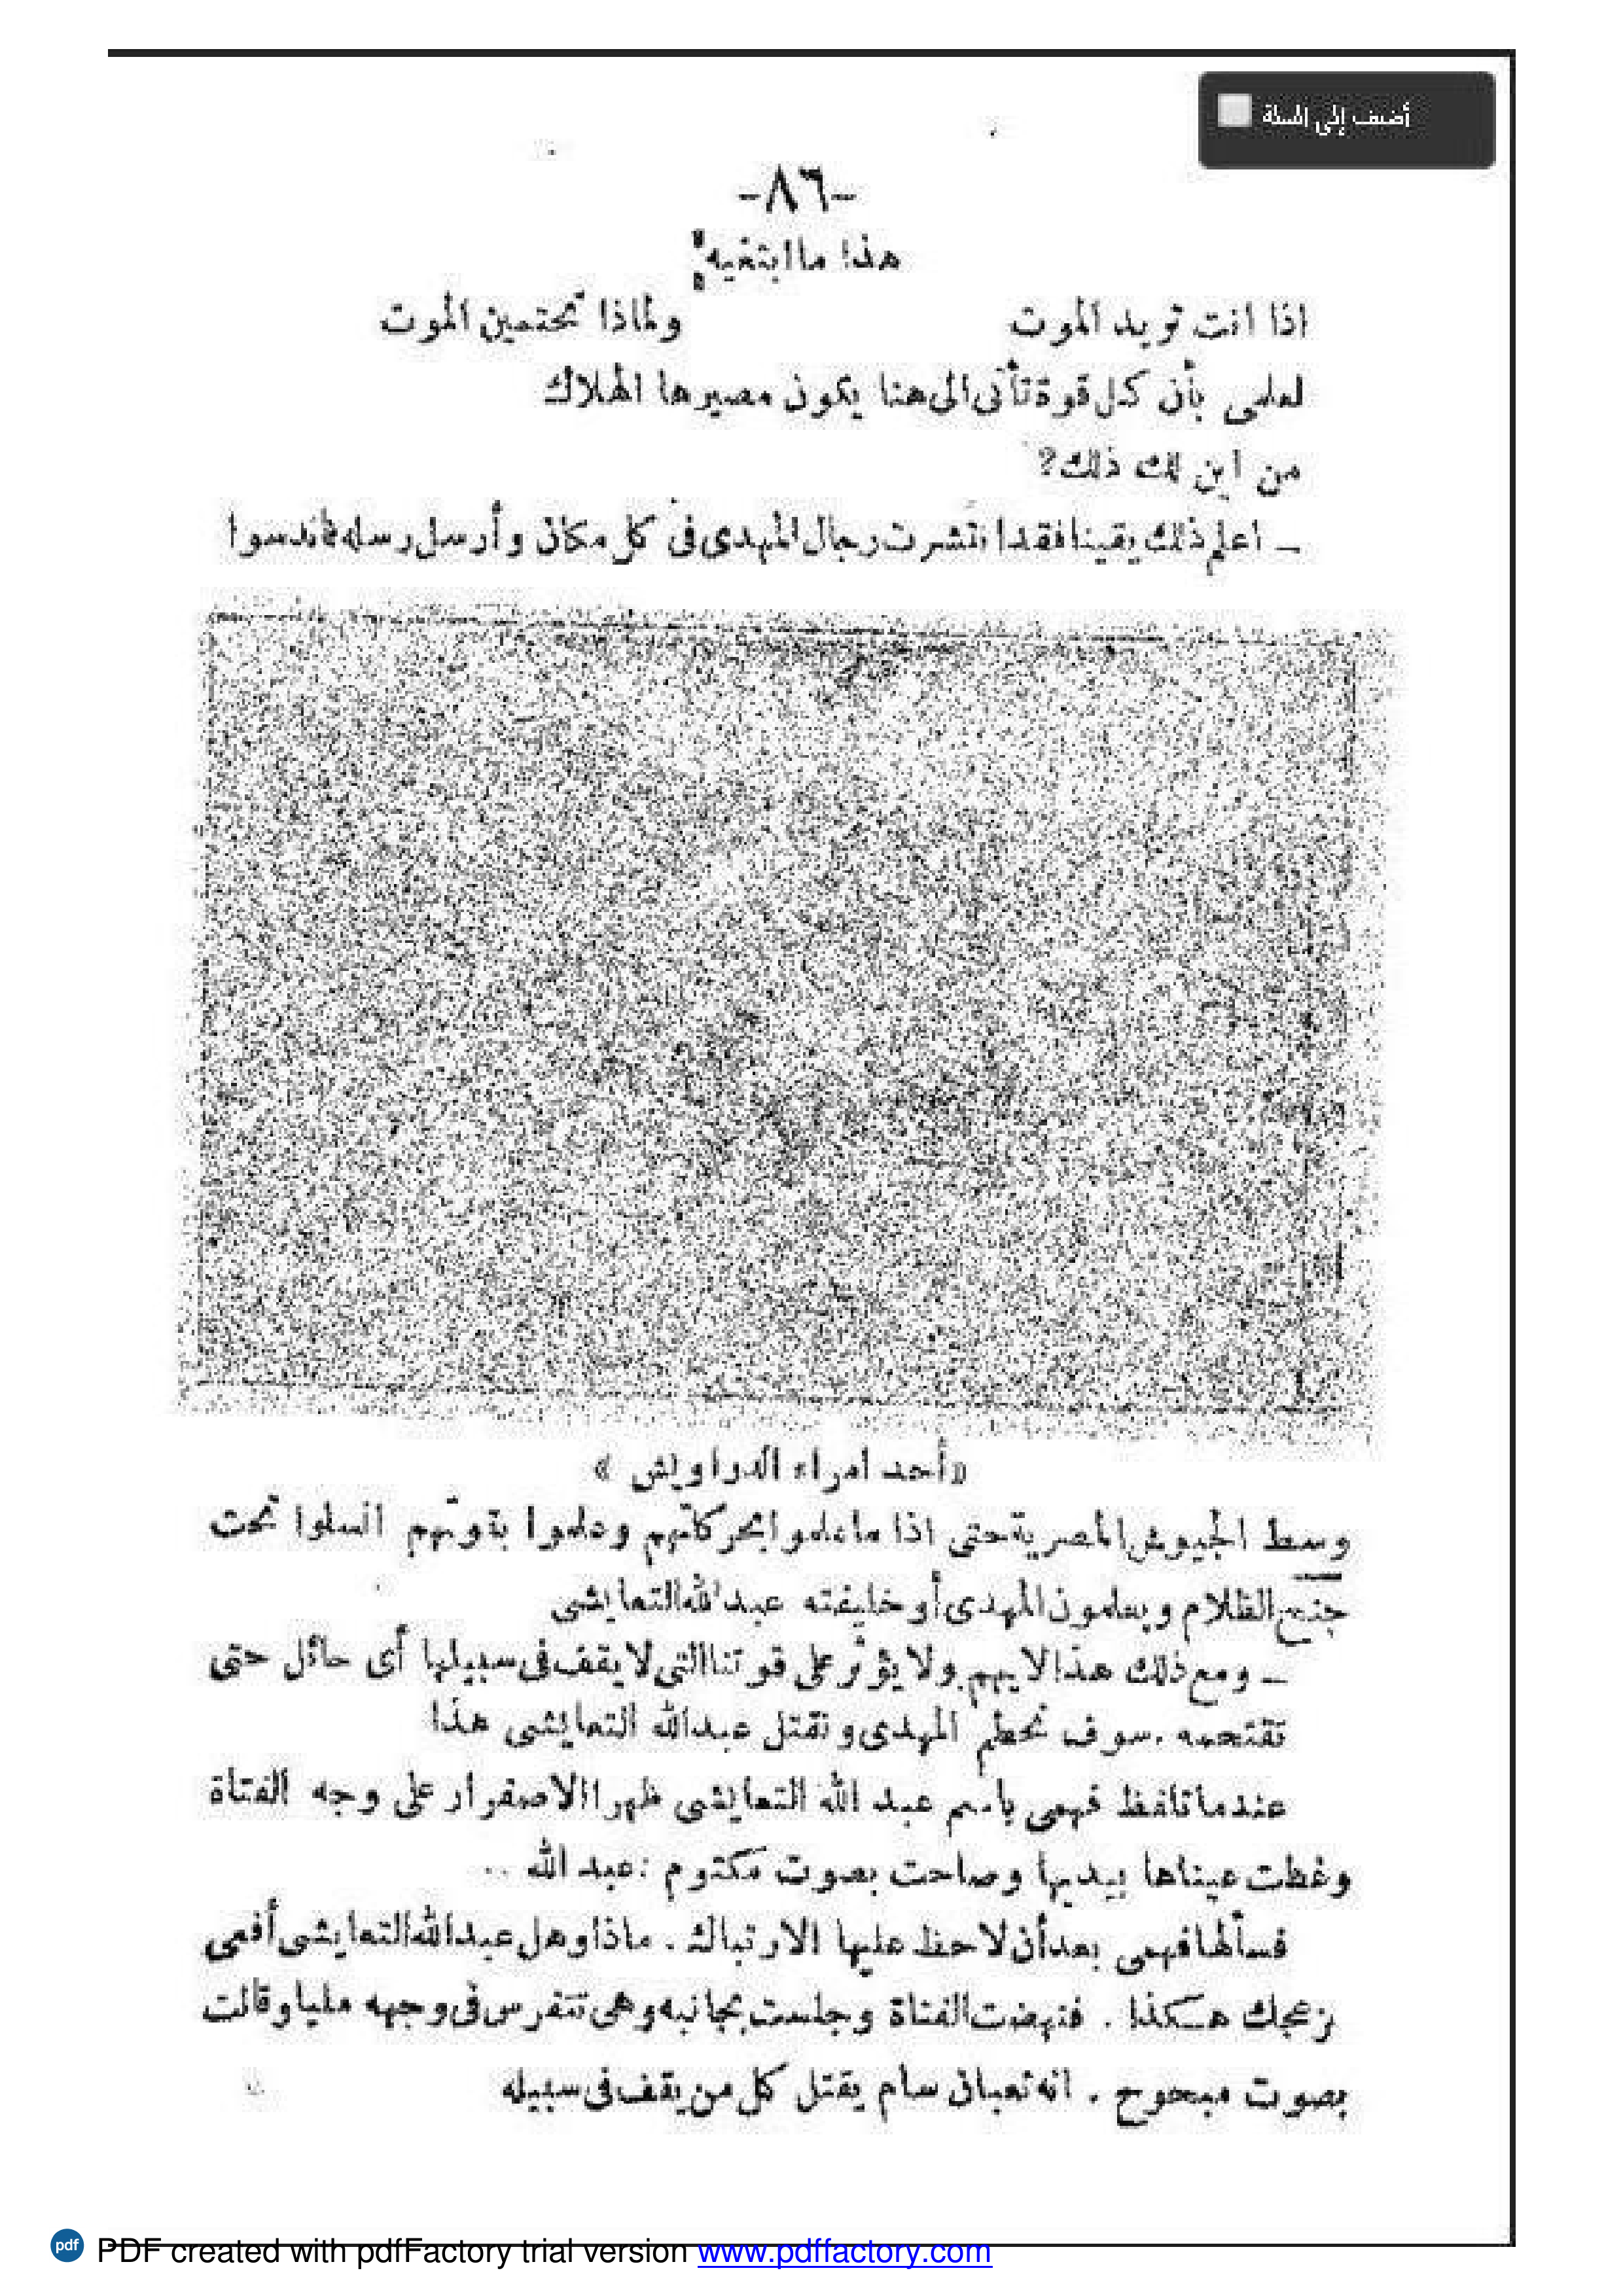 أضيف إلى السلة
-٨٦-
هذا ما ابتغيه
اذا انت تريد الموت ولماذا تحتمين الموت
لعلمى بأن كل قوة تأتى الى هنا يكون مصيرها الهلاك
من اين لك ذلك؟
ــ اعلم ذلك يقينا فقد انتشرت رجال المهدى فى كل مكان وأرسل رسله فاندسوا
«أحد امراء الدراويش»
وسط الجيوش المصرية حتى اذا ما علموا بحركاتهم وعلموا بقوتهم انسلوا تحت
جنح الظلام ويعلمون المهدى أو خليفته عبد الله التعايشى
ــ ومع ذلك هذا لا يهم ولا يؤثر على قوتنا التى لا يقف فى سبيلها أى حائل حتى
تقتحمه . سوف نحطم المهدى ونقتل عبدالله التعايشى هذا
عندما تلفظ فهمى باسم عبد الله التعايشى ظهر االاصفرار على وجه الفتاة
وغطت عيناها بيديها وصاحت بصوت مكتوم : عبد الله ..
فسألها فهمى بعد أن لاحظ عليها الارتباك . ماذا وهل عبدالله التعايشى أفعى
زعجك هكذا . فنهضت الفتاة وجلست بجانبه وهى تتفرس فى وجهه مليا وقالت
بصوت مبحوح . انه ثعبان سام يقتل كل من يقف فى سبيله
pdf PDF created with pdfFactory trial version www.pdffactory.com